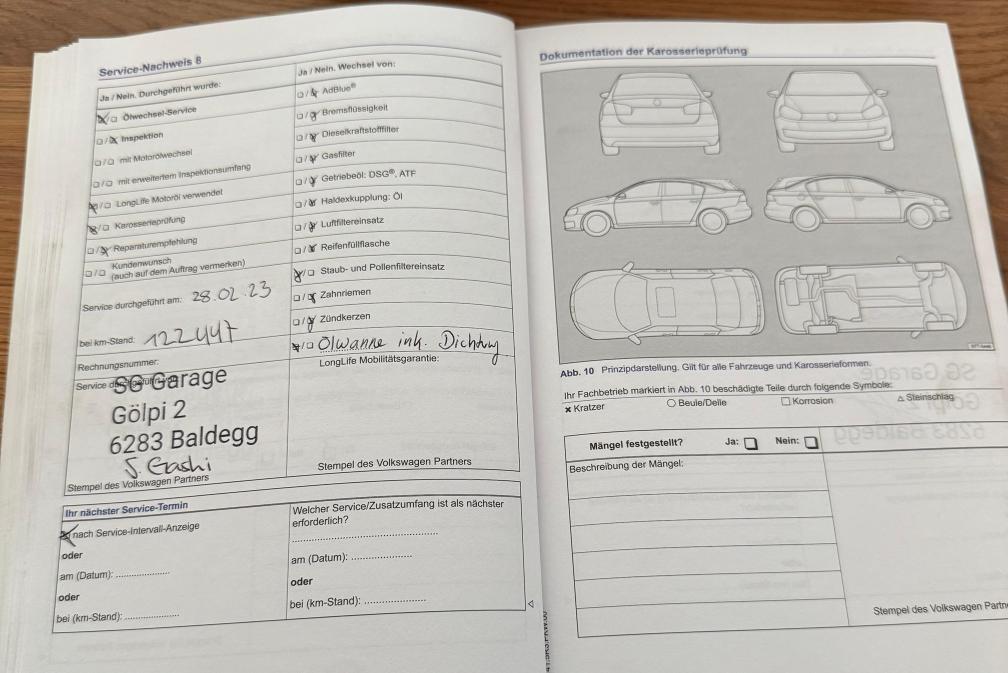 Service-Nachweis 8
Ja / Nein. Durchgeführt wurde:
Ölwechsel-Service
Inspektion
mit Motorölwechsel
mit erweitertem Inspektionsumfang
LongLife Motoröl verwendet
Karosserieprüfung
Reparaturempfehlung
Kundenwunsch
(auch auf dem Auftrag vermerken)
Service durchgeführt am: 28.02.23
bei km-Stand: 122447
Rechnungsnummer:
Service
SG Garage
Gölpi 2
6283 Baldegg
S. Gashi
Stempel des Volkswagen Partners
Ja / Nein. Wechsel von:
AdBlue®
Bremsflüssigkeit
Dieselkraftstofffilter
Gasfilter
Getriebeöl: DSG®, ATF
Haldexkupplung: Öl
Luftfiltereinsatz
Reifenfüllflasche
Staub- und Pollenfiltereinsatz
Zahnriemen
Zündkerzen
Ölwanne ink. Dichtung
LongLife Mobilitätsgarantie:
Stempel des Volkswagen Partners
Ihr nächster Service-Termin
nach Service-Intervall-Anzeige
oder
am (Datum): ....................
oder
bei (km-Stand): ....................
Welcher Service/Zusatzumfang ist als nächster
erforderlich?
am (Datum): ....................
oder
bei (km-Stand): ....................
Dokumentation der Karosserieprüfung
Abb. 10 Prinzipdarstellung. Gilt für alle Fahrzeuge und Karosserieformen.
Ihr Fachbetrieb markiert in Abb. 10 beschädigte Teile durch folgende Symbole:
× Kratzer ○ Beule/Delle □ Korrosion △ Steinschlag
Mängel festgestellt? Ja: □ Nein: □
Beschreibung der Mängel:
Stempel des Volkswagen Partn